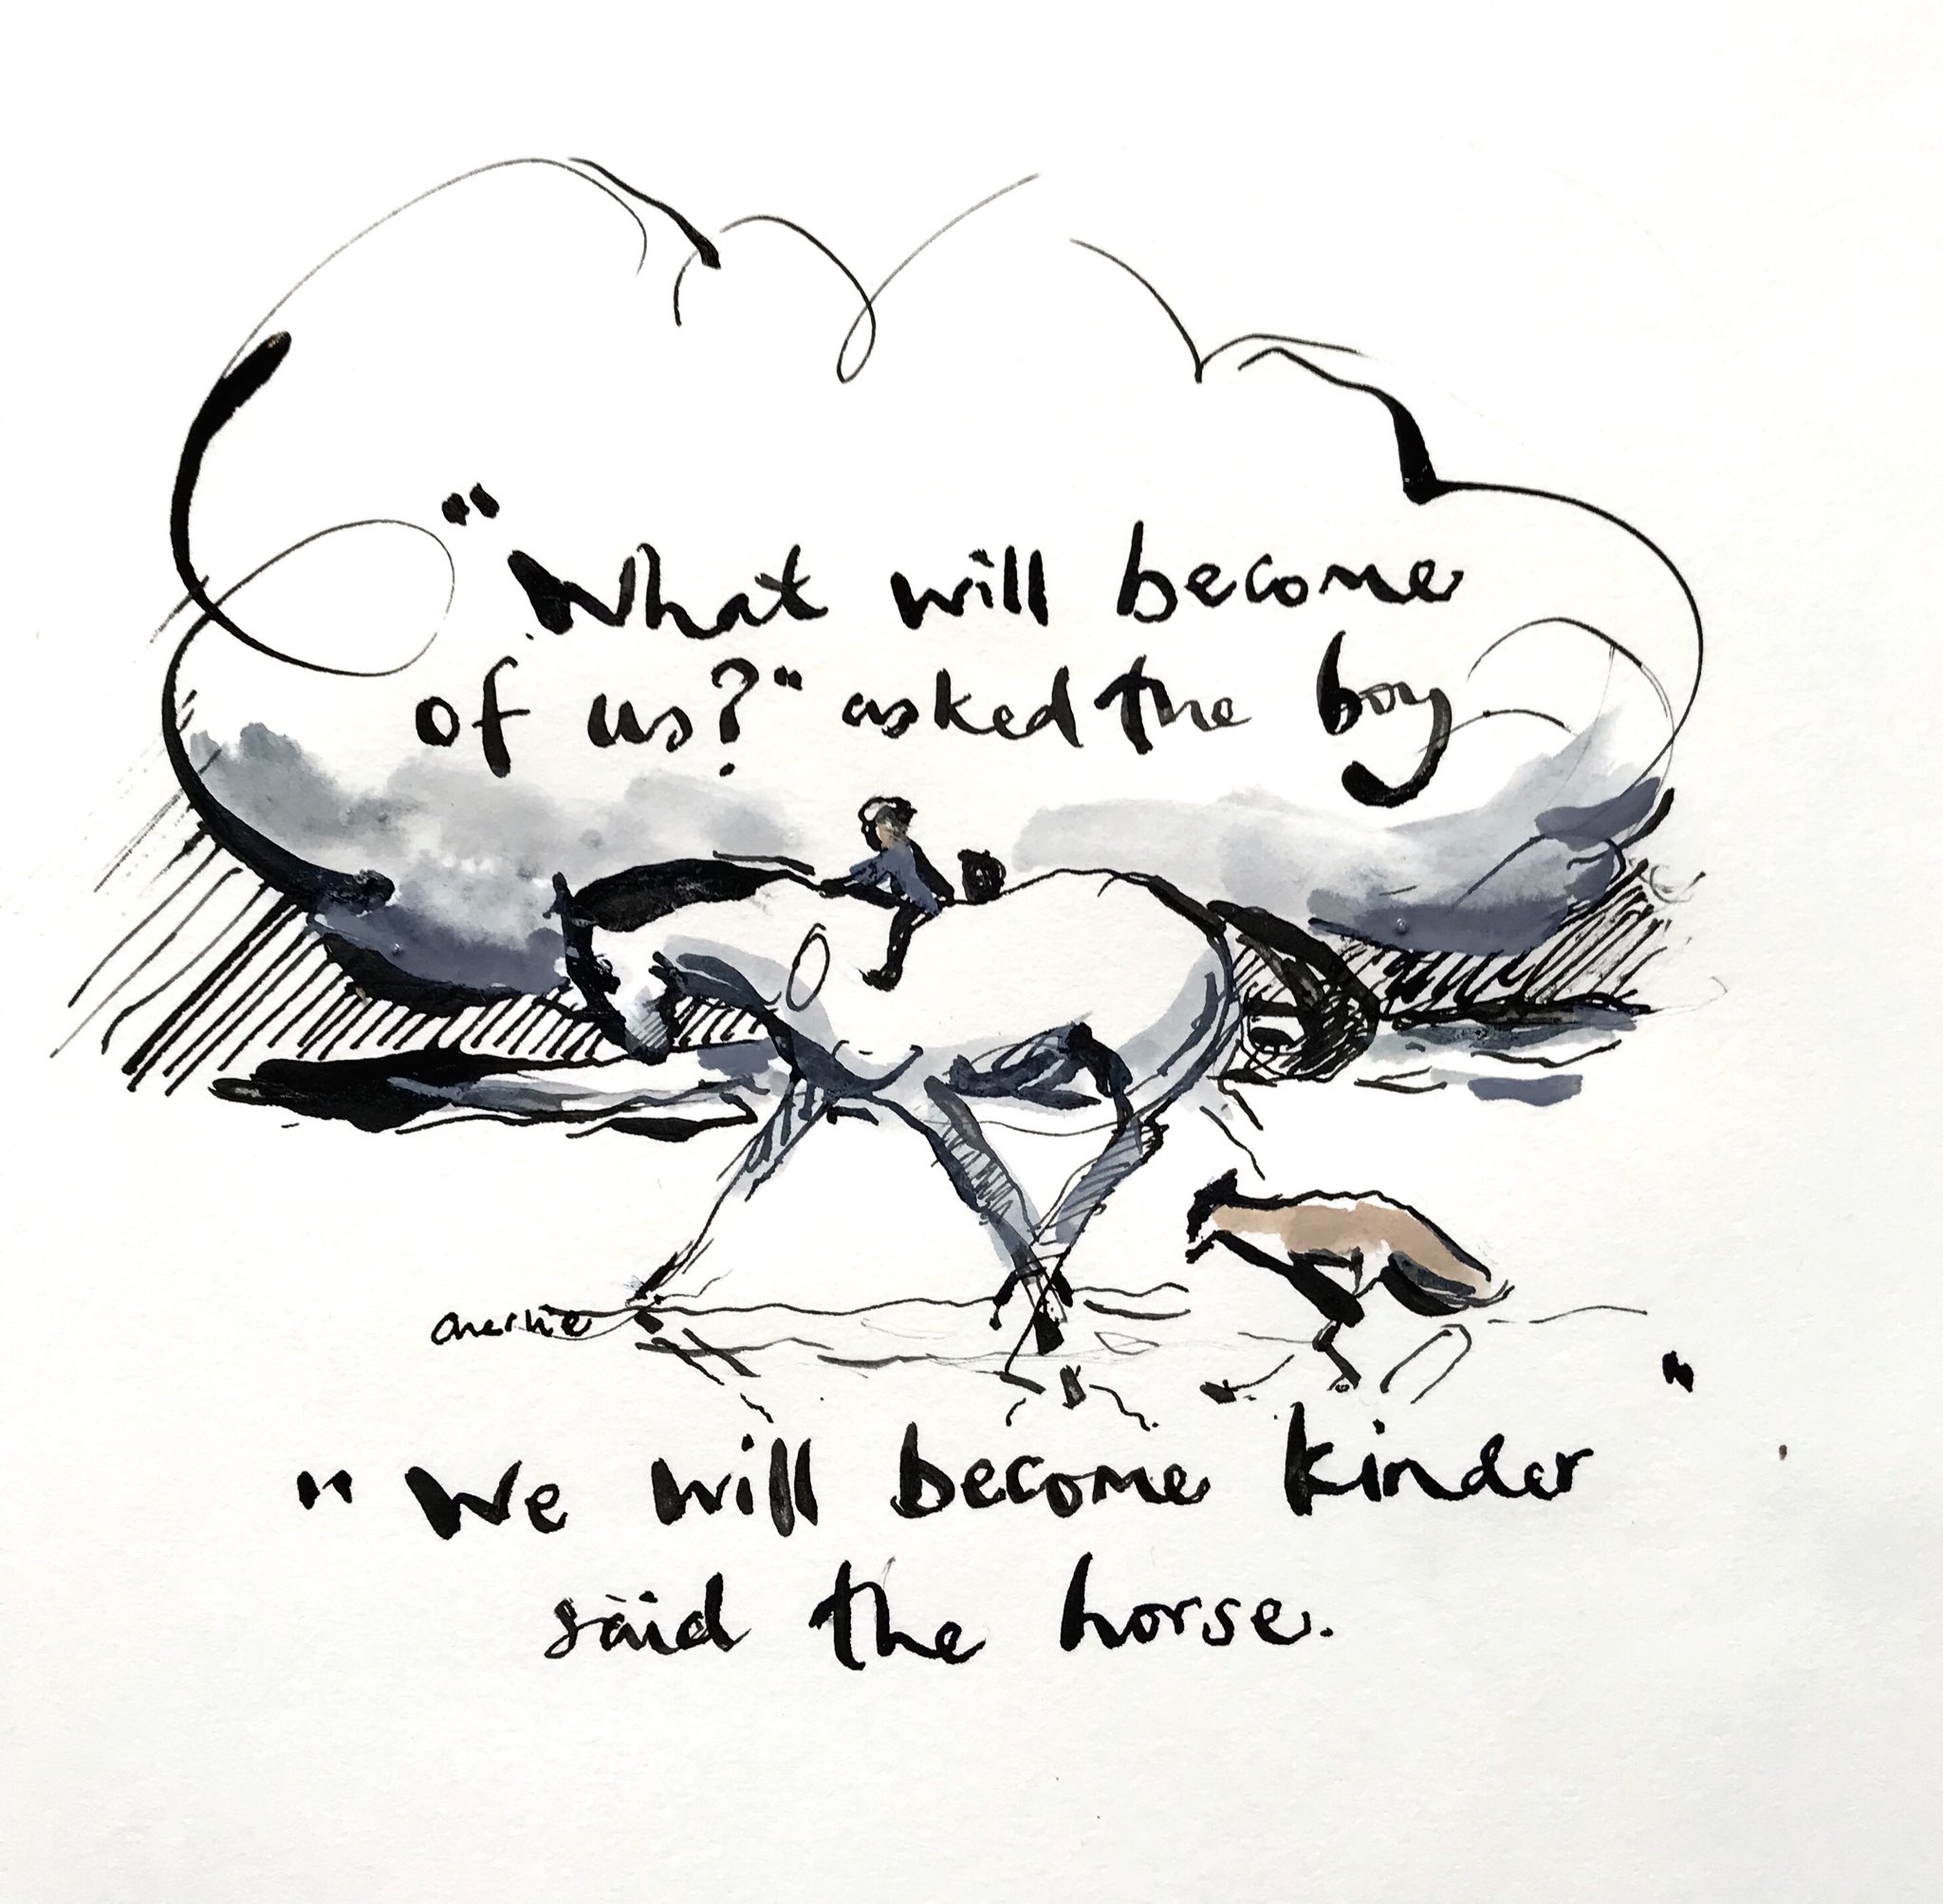 "What will become
of us?" asked the boy
Charlie
"We will become kinder"
said the horse.